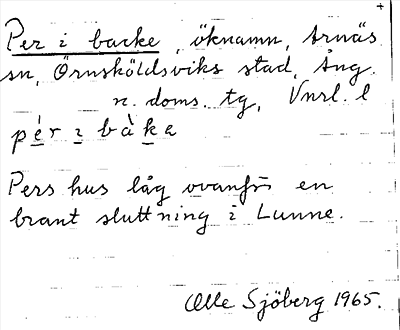 Per i backe, öknamn, Arnäs
sn, Örnsköldsviks stad, Ång.
n. doms. tg, Vnrl. l
pér i bàka
Pers hus låg ovanför en
brant sluttning i Lunne.
Olle Sjöberg 1965.